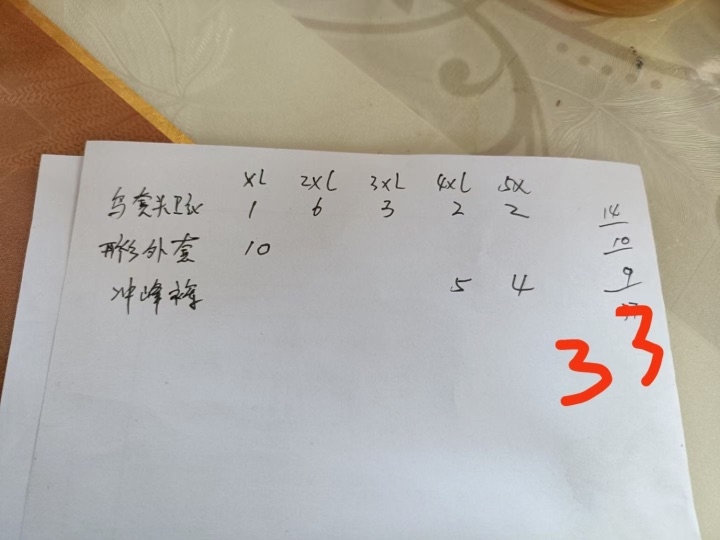 XL 2XL 3XL 4XL 5X
乌套头卫衣 1 6 3 2 2 14
外套 10 10
冲峰裤 5 4 9
33